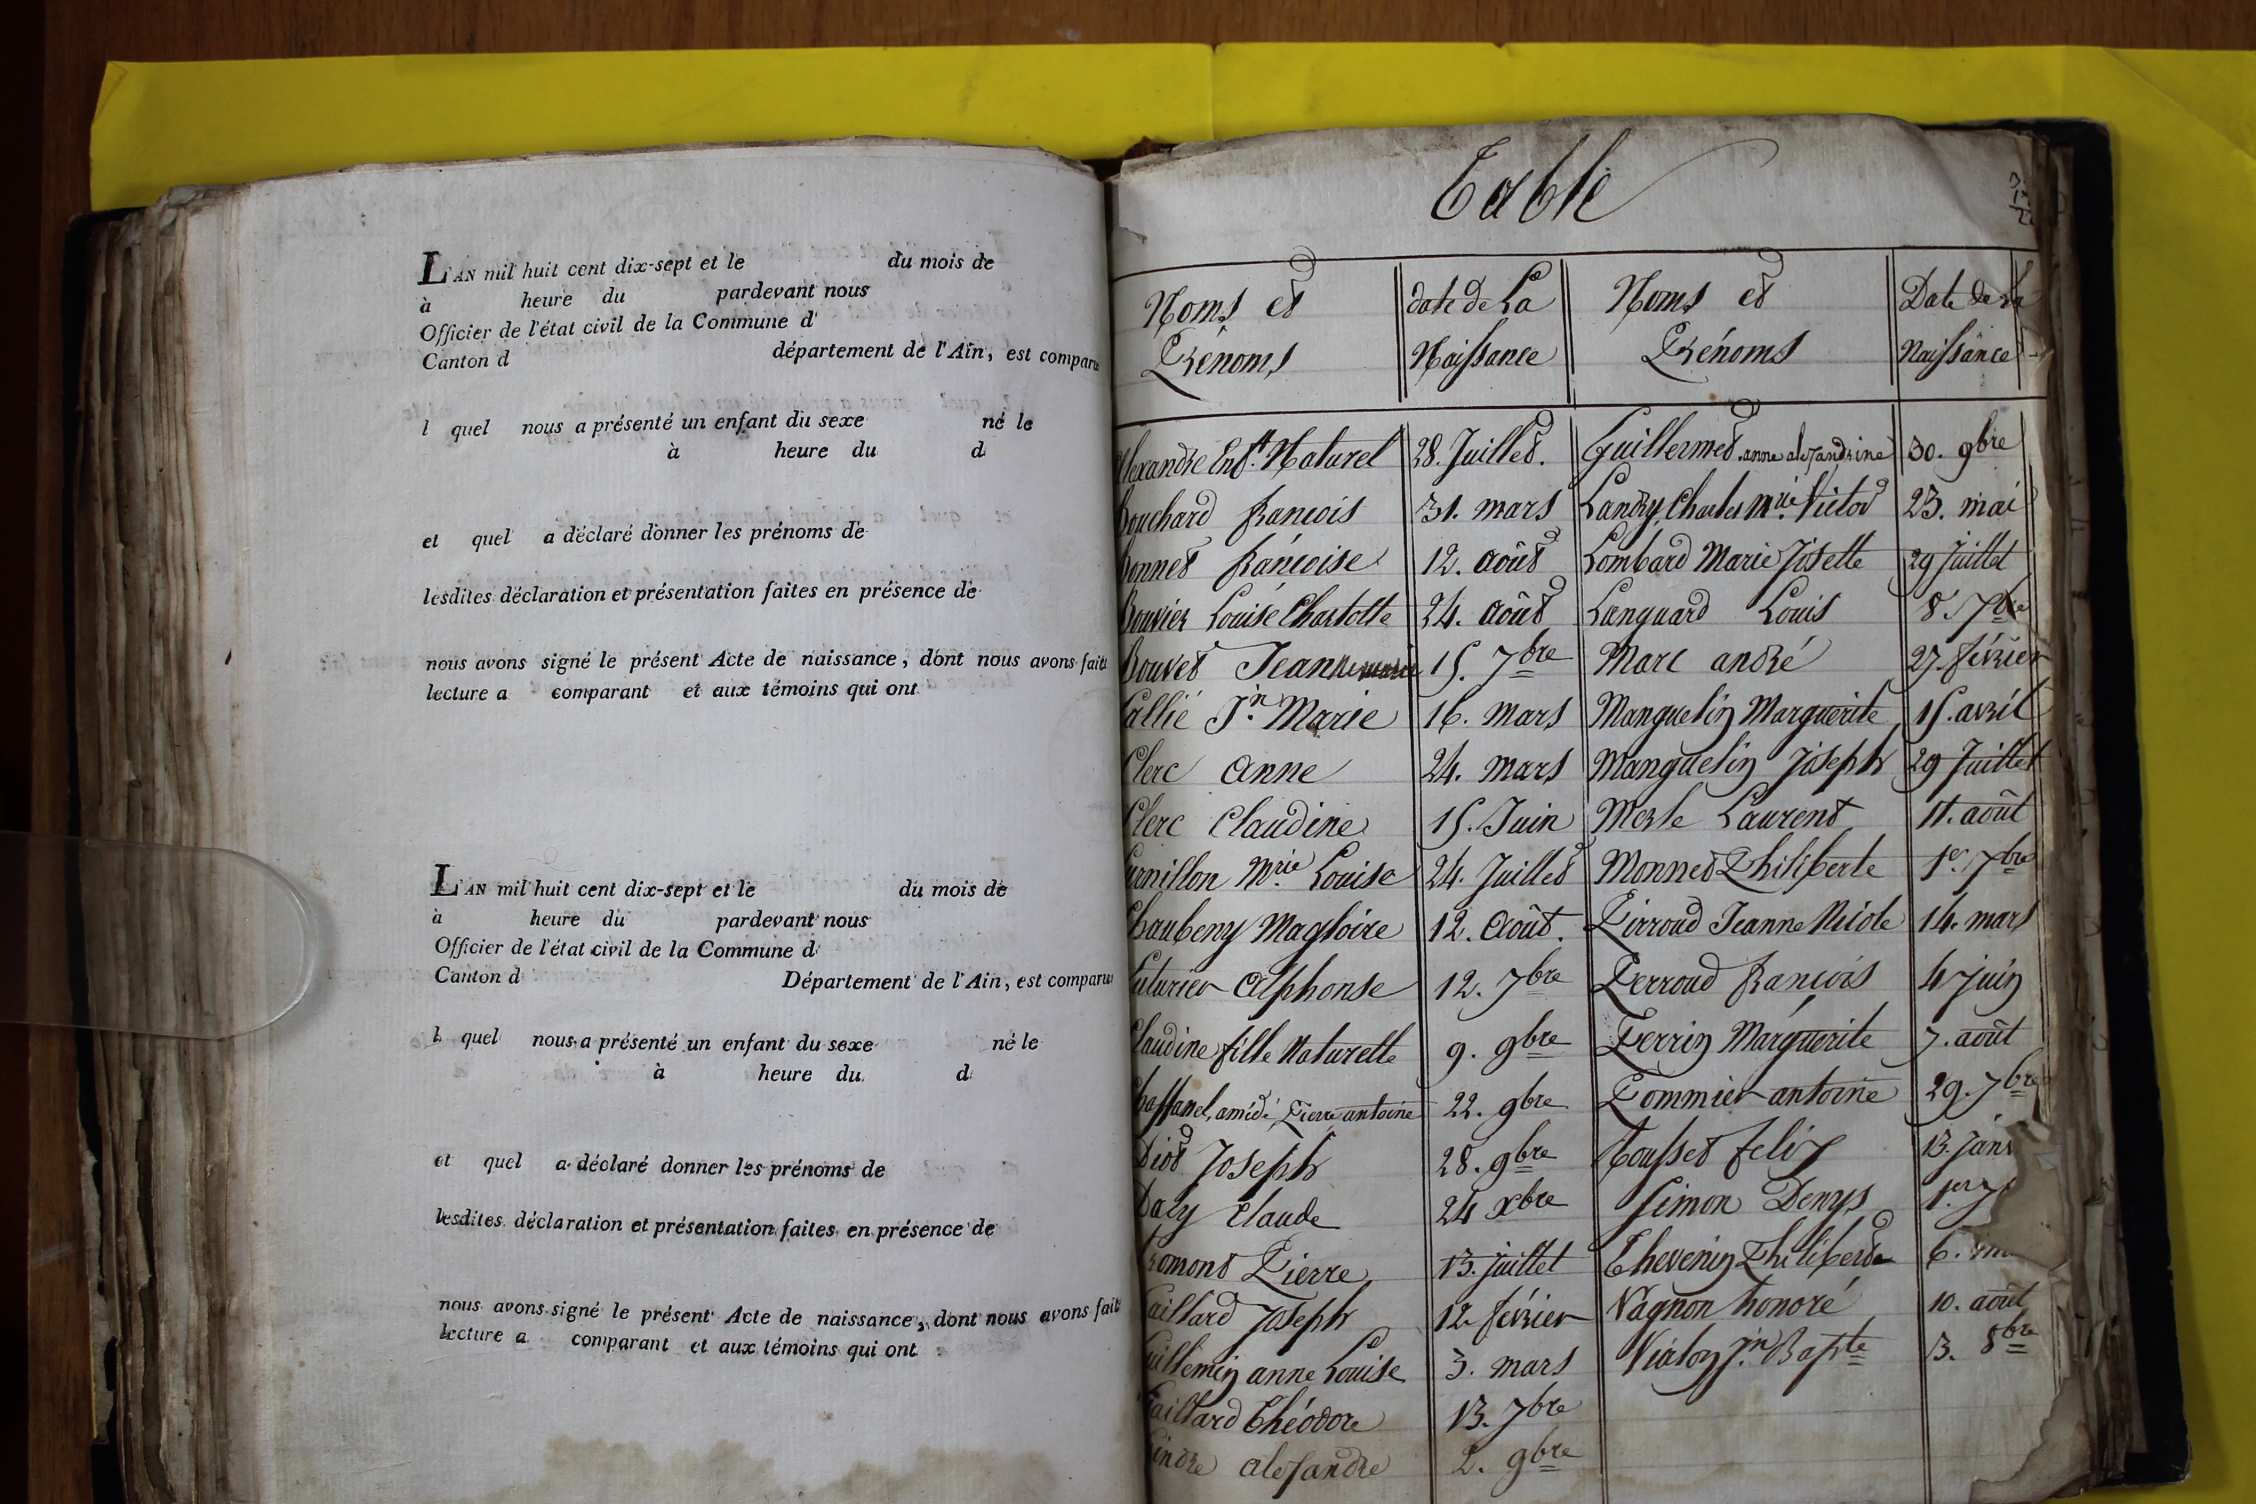 L'AN mil huit cent dix-sept et le du mois de
à heure du pardevant nous
Officier de l'état civil de la Commune d
Canton d département de l'Ain, est comparu
l quel nous a présenté un enfant du sexe né le
à heure du d
et quel a déclaré donner les prénoms de
lesdites déclaration et présentation faites en présence de
nous avons signé le présent Acte de naissance, dont nous avons fait
lecture a comparant et aux témoins qui ont
L'AN mil huit cent dix-sept et le du mois de
à heure du pardevant nous
Officier de l'état civil de la Commune d
Canton d Département de l'Ain, est comparu
l quel nous a présenté un enfant du sexe né le
à heure du d
et quel a déclaré donner les prénoms de
lesdites déclaration et présentation faites en présence de
nous avons signé le présent Acte de naissance, dont nous avons fait
lecture a comparant et aux témoins qui ont
Table
Noms et Prénoms
date de La Naissance
Noms et Prénoms
Date de La Naissance
Alexandre Enft. Naturel 28. Juillet. Guillermet anne alexandrine 30. 9bre
Bouchard françois 31. mars Landry Charles Mrie. Victor 23. mai
Bonnet françoise 12. août Lombard Marie Josette 29 Juillet
Bouvier Louise Charlotte 24. août Languard Louis 8. 7bre
Bouvet Jeanne marie 15. 7bre Marc andré 27. février
Callié Jn. Marie 16. mars Manguelin Marguerite 15. avril
Clerc anne 24. mars Manguelin Joseph 29 Juillet
Clerc Claudine 15. Juin Merle Laurent 11. août
Mrie. Louise 24. Juillet Monnet Philiberte 1er. 7bre
Chaubeny Magloire 12. Août. Pirroud Jeanne Nicole 14. mars
Cuturier Alphonse 12. 7bre Perroud françois 4 juin
Claudine fille Naturelle 9. 9bre Perrin Marguerite 7. août
Chaffanel, amédé Pierre antoine 22. 9bre Pommier antoine 29. 7bre
Diot Joseph 28. 9bre Rousset felix 13. janv
Daly Claude 24 xbre Simon Denys 1er
fromont Pierre 13. juillet Thevenin Philiberte 6.
Gaillard Joseph 12 février Vagnon honoré 10. août
Guillemin anne Louise 3. mars Vialon Jn. Bapte 3. 8bre
Gaillard Théodore 13. 7bre
Gindre alexandre 2. 9bre